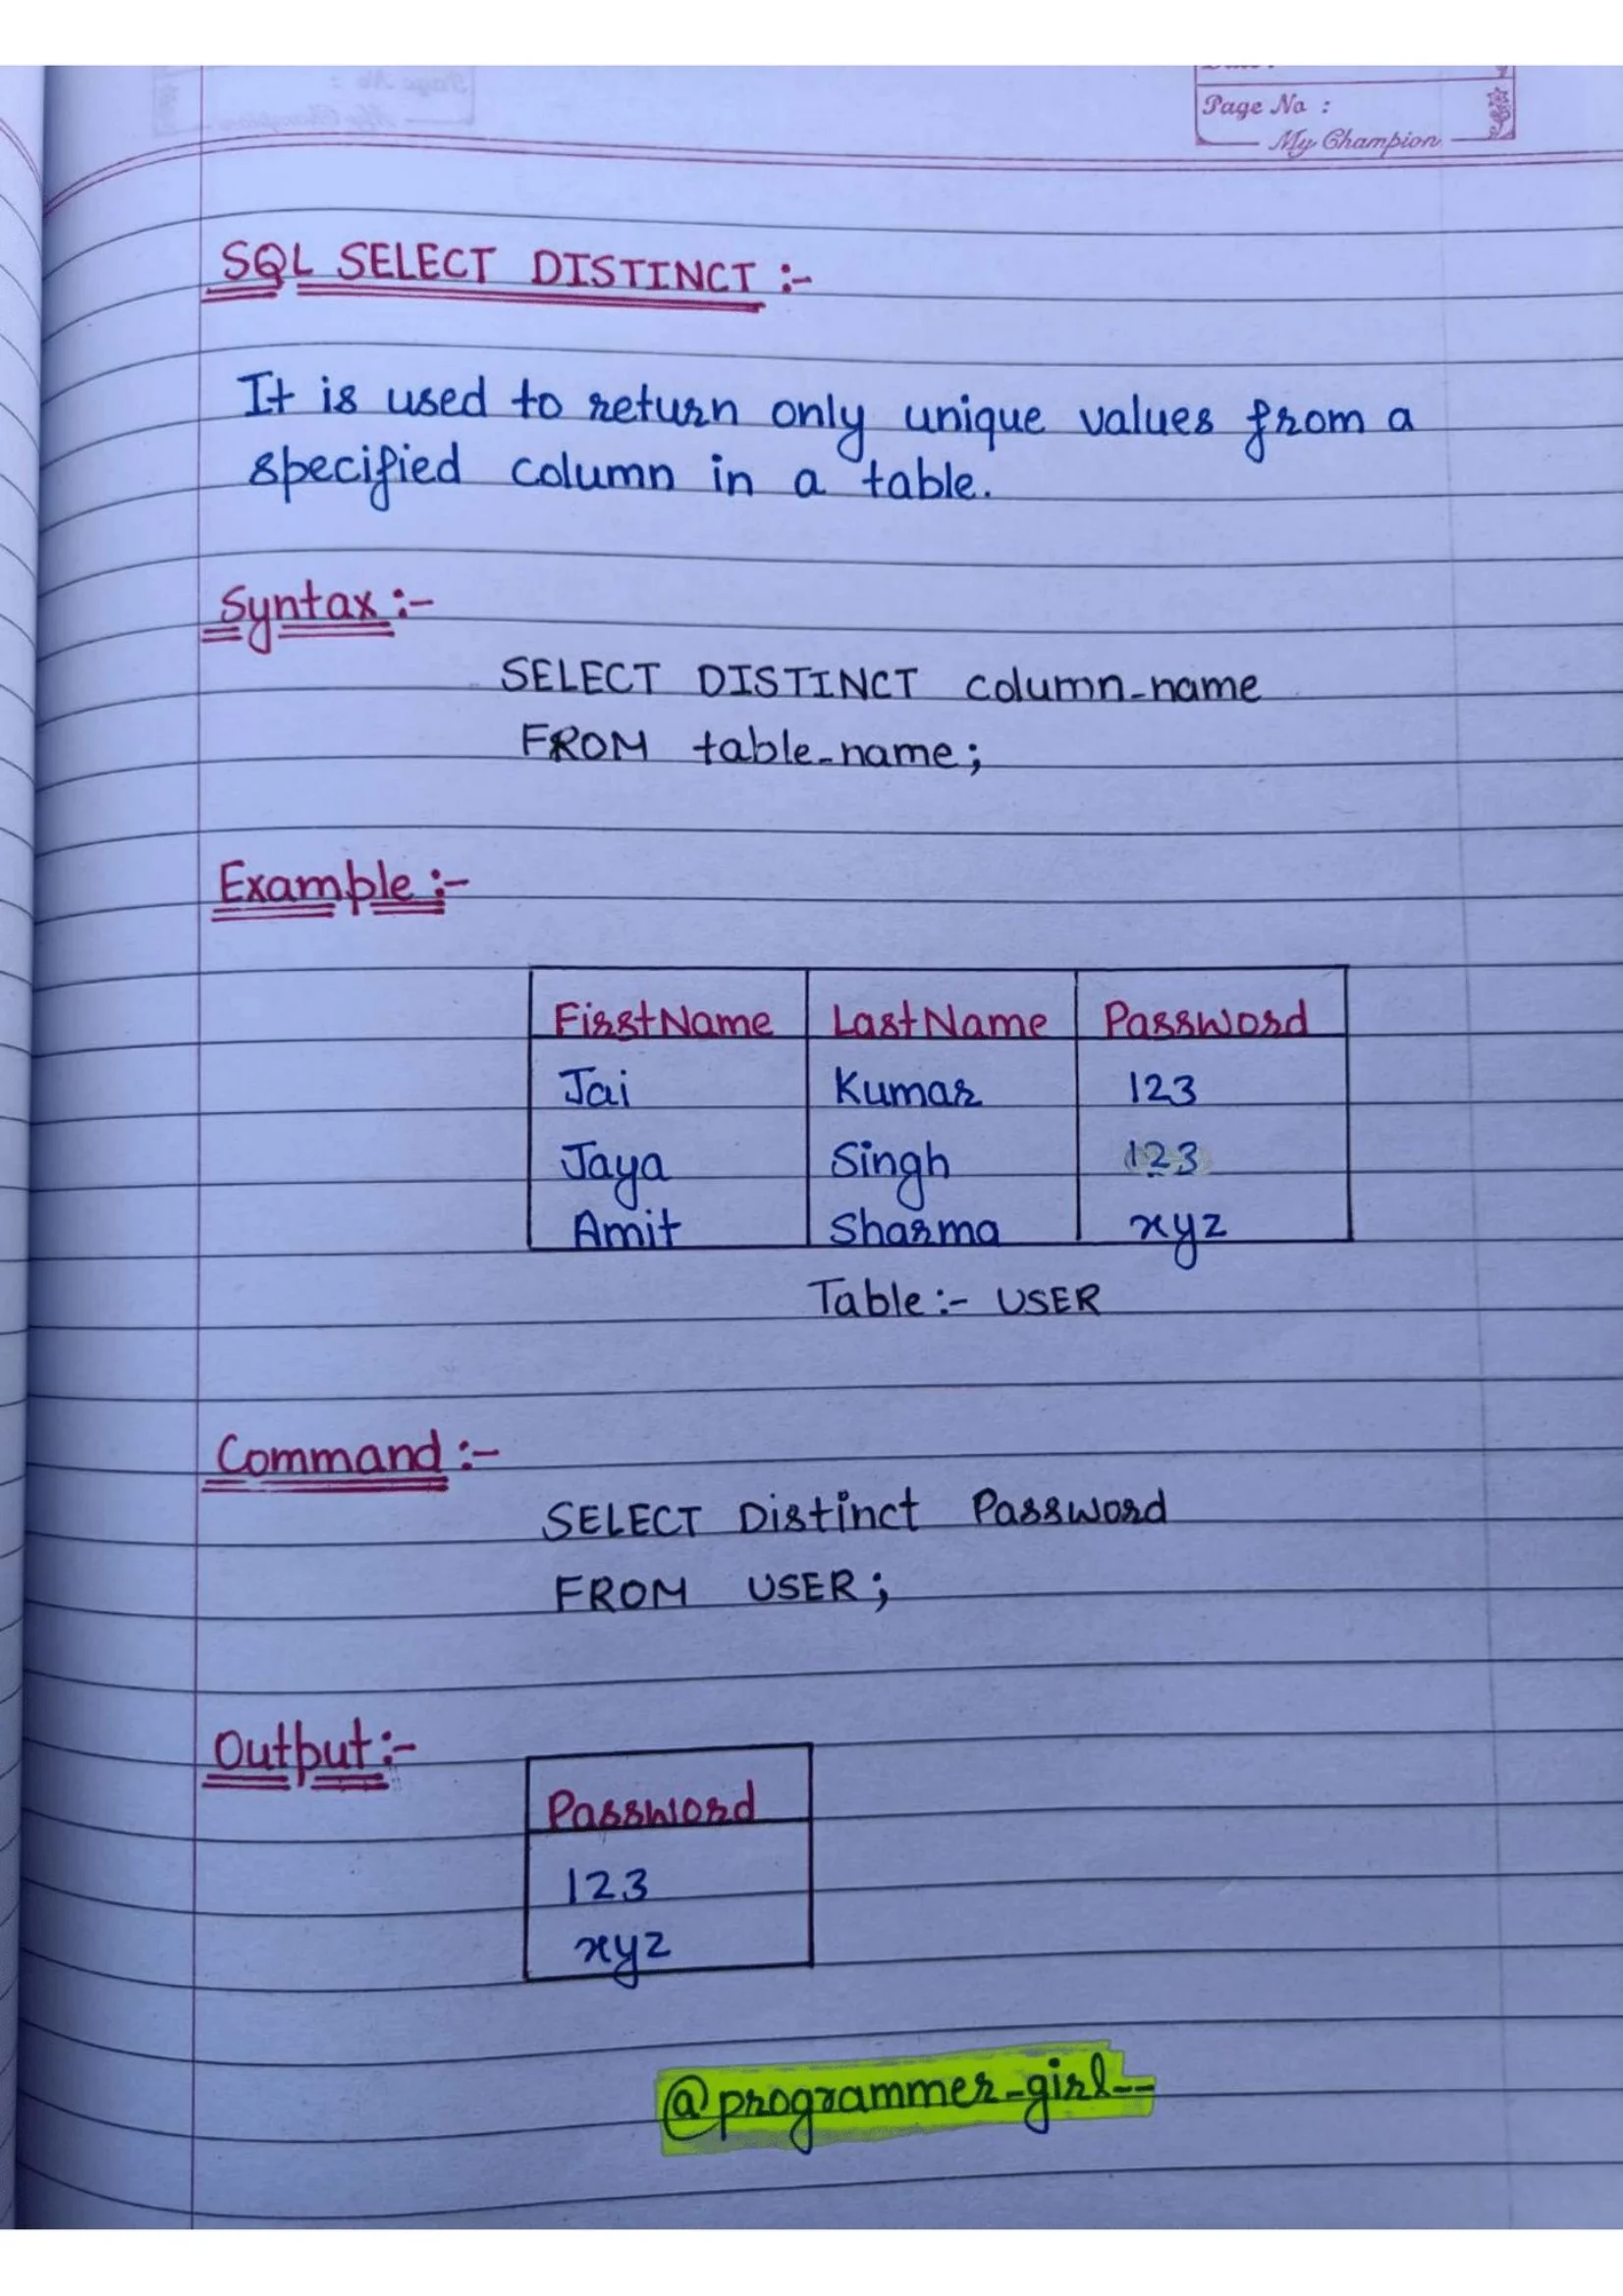 Page No :
My Champion
SQL SELECT DISTINCT :-
It is used to return only unique values from a
specified column in a table.
Syntax :-
SELECT DISTINCT column_name
FROM table_name;
Example :-
FirstName LastName Password
Jai Kumar 123
Jaya Singh 123
Amit Sharma xyz
Table :- USER
Command :-
SELECT Distinct Password
FROM USER ;
Output :-
Password
123
xyz
@programmer_girl__